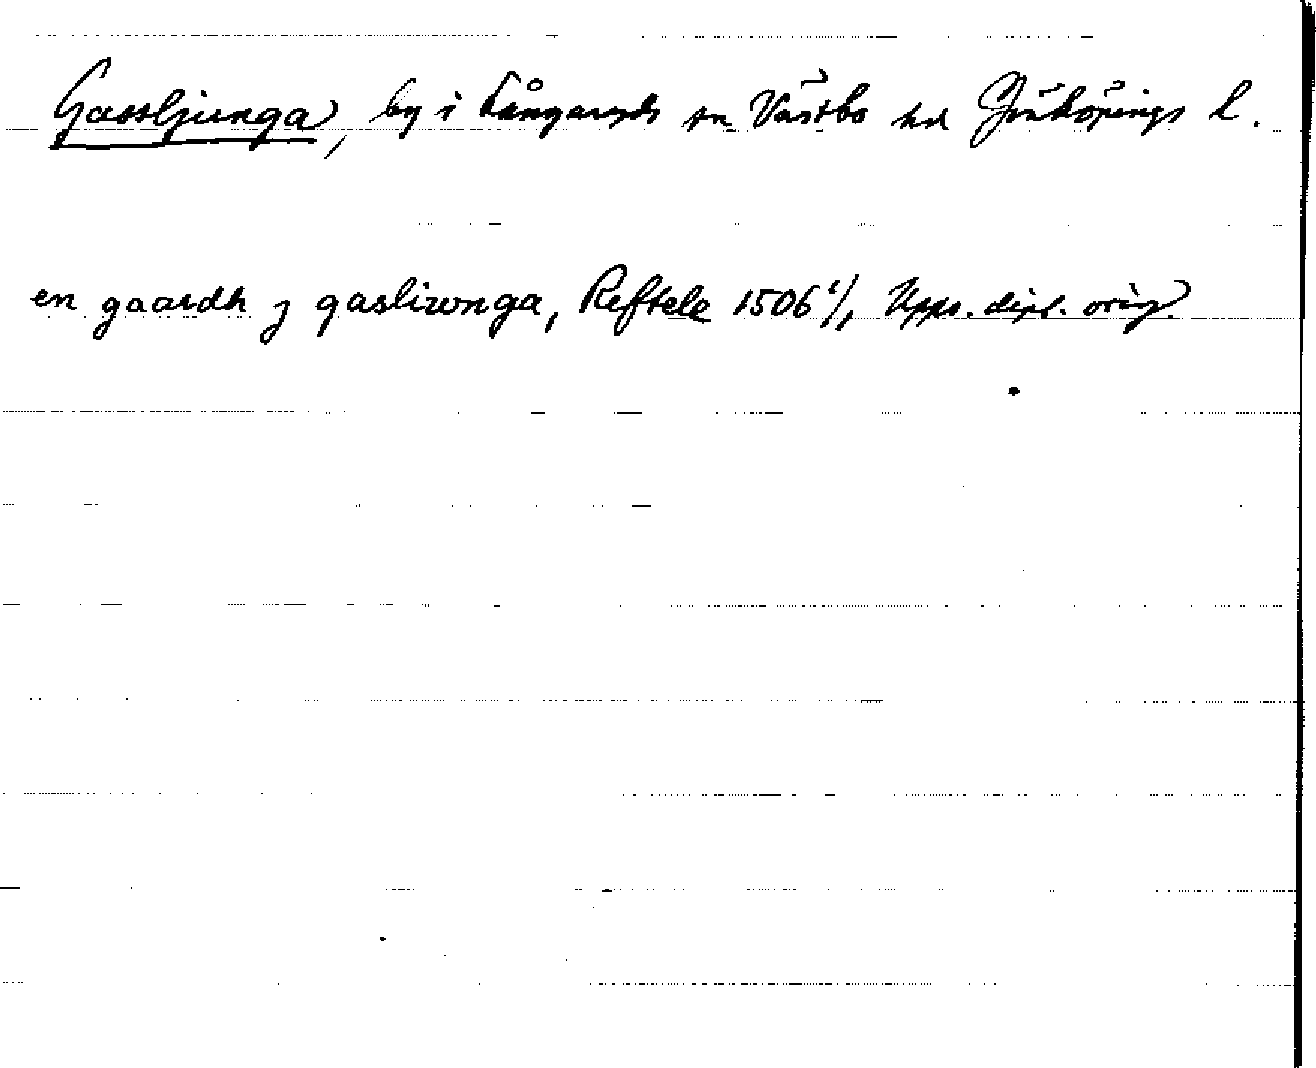 Gassljunga, by i Kångaryds sn Västbo hd Jönköpings l.
en gaardh j gasliwnga, Reftele 1506 1/1, Upps. dipl. orig.